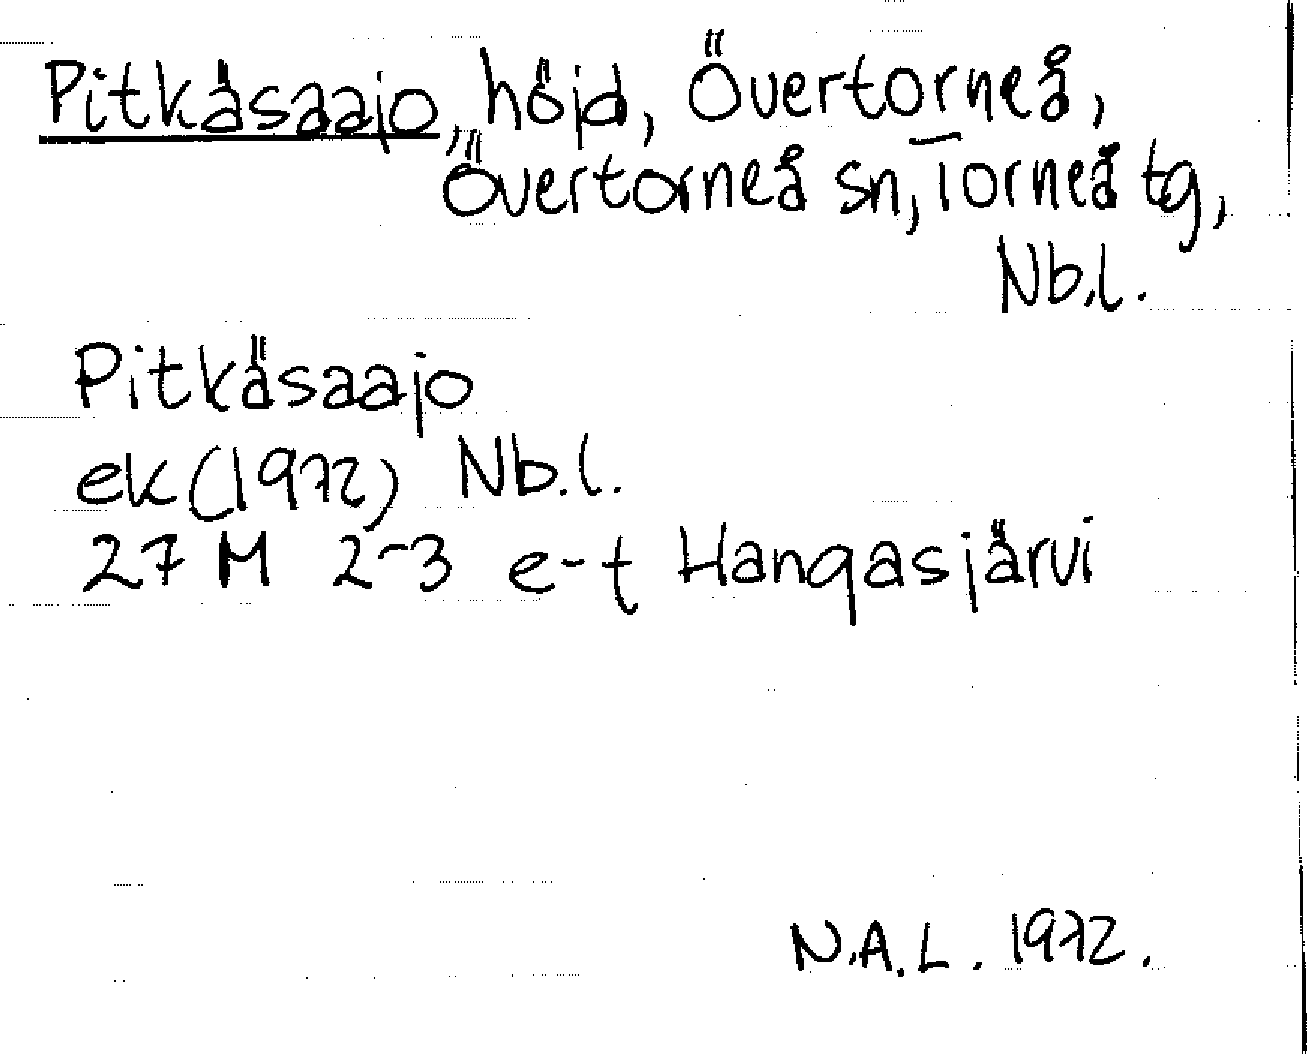 Pitkäsaajo, höjd, Övertorneå,
Övertorneå sn, Torneå tg,
Nb.l.
Pitkäsaajo
ek (1972) Nb.l.
27 M 2-3 e-f Hangasjärvi
N.A.L. 1972.